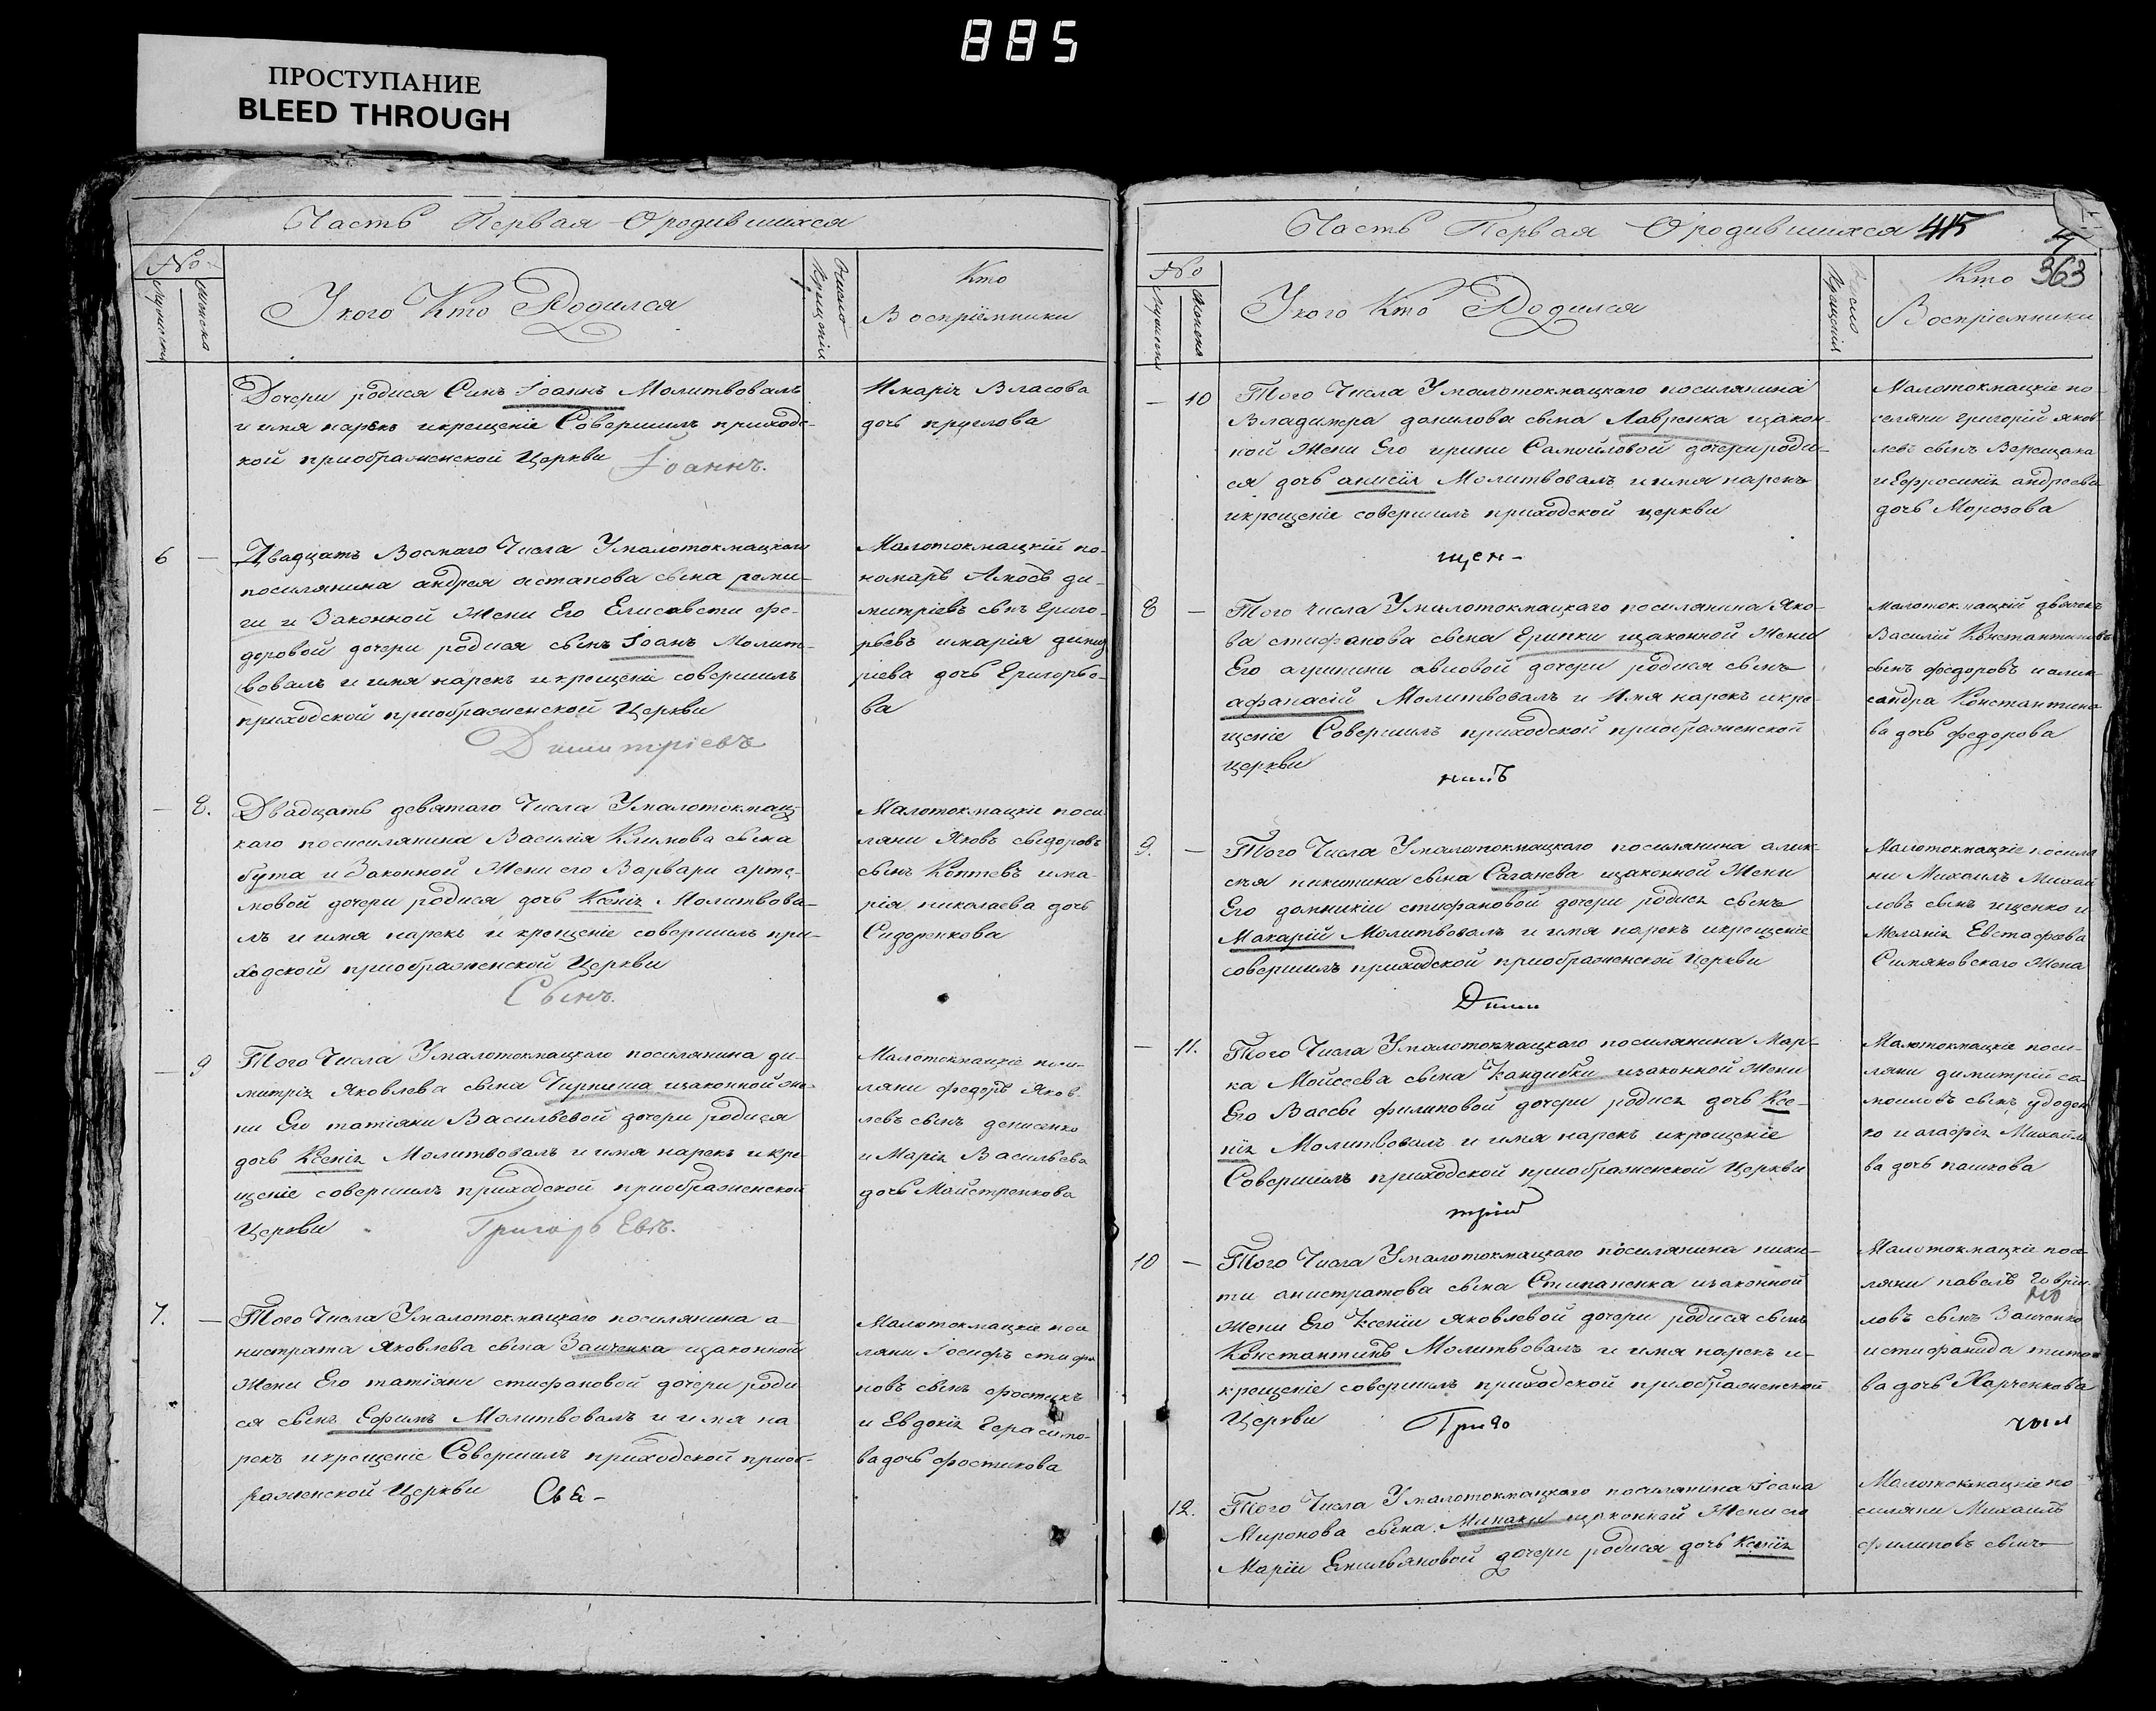 885
ПРОСТУПАНИЕ
BLEED THROUGH
Часть Первая О родившихся
No
Мужеска
Женска
У кого Кто Родился
Число Крещенія
Кто
Воспріемники
Дочери родися Синъ Іоаннъ Молитвовалъ
и имя нарекъ и крещеніе Совершилъ приходс-
кой приображенской Церкви
Іоаннъ.
и маріѧ Власова
дочь
6
—
Двадцать Восмаго Числа У малотокмацкаго
посилянина андрея астапова сына реми-
ги и Законной Жени Его Елисавети фе-
доровой дочери родися сынъ Іоанъ Молит-
вовалъ и имя нарекъ и крещеніе совершилъ
приходской приображенской Церкви
Димитріевъ
Малотокмацкій по-
номаръ Амосъ ди-
митріевъ сынъ Григо-
рьевъ и марія димит
ріева дочь Григорьо-
ва
—
8.
Двадцать девятаго Числа У малотокмац-
каго посисилянина Василія Климова сына
бута и Законной Жени его Варвари арте-
мовой дочери родися дочь Ксеніѧ Молитвова-
лъ и имя нарекъ и крещеніе совершилъ при-
ходской приображенской Церкви
Сынъ.
Малотокмацкіе поси
ляни Яковъ сыдоровъ
сынъ Коптевъ и ма-
рія николаева дочь
Сидоренкова
—
9
Того Числа У малотокмацкаго посилянина ди-
митріѧ Яковлева сына Чирпиша и законной же-
ни Его татіяни Васильевой дочери родися
дочь Ксеніѧ Молитвовалъ и имя нарекъ и кре-
щеніе совершилъ приходской приображенской
Церкви
Григорь Евъ.
Малотокмацкіе поси-
ляни федоръ Яков-
левъ сынъ денисенко
и Маріѧ Васильева
дочь Майстренкова
7.
—
Того Числа У малотокмацкаго посилянина а-
нистрата Яковлева сына Заиченка и законной
Жени Его татіяни стифановой дочери роди
ся сынъ Ефимъ Молитвовалъ и имя на
рекъ и крещеніе Совершилъ приходской приоб-
раженской Церкви
Малотокмацкіе поси
ляни Іосифъ стифа
новъ сынъ фостикъ
и Евдокіѧ Герасимо-
ва дочь фостикова
Часть Первая О родившихся 415
363
No
Мужеска
Женска
У кого Кто Родился
Число Крещенія
Кто
Воспріемники
—
10
Того Числа У малотокмацкаго посилянина
Владимра данилова сына Лавренка и закон-
ной Жени Его ирини Самойловой дочери роди-
ся дочь анисіѧ Молитвовалъ и имя нарекъ
и крещеніе совершилъ приходской церкви
щен-
Малотокмацкіе по
селяни григорій яков
левъ сынъ Верещака
и Ефросиніѧ андреева
дочь Морозова
8
—
Того числа У малотокмацкаго посилянина Яко-
ва стифанова сына Грипки и законной Жени
Его агрипини авиловой дочери родися сынъ
афанасій Молитвовалъ и Имя нарекъ и кре-
щеніе Совершилъ приходской приображенской
церкви
Малотокмацкій дьячекъ
Василій Константиновъ
сынъ федоровъ и алик-
сандра Константино
ва дочь федорова
9.
—
Того Числа У малотокмацкаго посилянина алик-
сѣя никитина сына Саганева и законной Жени
Его домникіи стифановой дочери родисѧ сынъ
Макарій Молитвовалъ и имя нарекъ и крещеніе
совершилъ приходской приображенской Церкви
Дими
Малотокмацкіе посиля
ни Михаилъ Михай
ловъ сынъ ищенко и
Меланіѧ Евстафева
Симяковскаго Жена
—
11.
Того Числа У малотокмацкаго посилянина Мар-
ка Моисеева сына Кандибки и законной Жени
Его Вассы филиповой дочери родисѧ дочь Ксе-
ніѧ Молитвовалъ и имя нарекъ и крещеніе
Совершилъ приходской приображенской Церкви
трій
Малотокмацкіе поси-
ляни димитрій са-
моиловъ сынъ удодон
ко и агафіѧ Михайло
ва дочь пашкова
10
—
Того Числа У малотокмацкаго посилянина ники-
ти анистратова сына Стипаненка и законной
Жени Его Ксеніи яковлевой дочери родися сынъ
Константинъ Молитвовалъ и имя нарекъ и-
крещеніе совершилъ приходской приображенской
Церкви
Григо
Малотокмацкіе поси
ляни павелъ гаври-
ловъ сынъ Заиченко
и стифанида тито
ва дочь Харченкова
12.
Того Числа У малотокмацкаго посилянина Іоана
Миронова сына Минаки и законной Жени его
Маріи Емильяновой дочери родися дочь Ксеніѧ
Малотокмацкіе по-
силяни Михаилъ
филиповъ сынъ